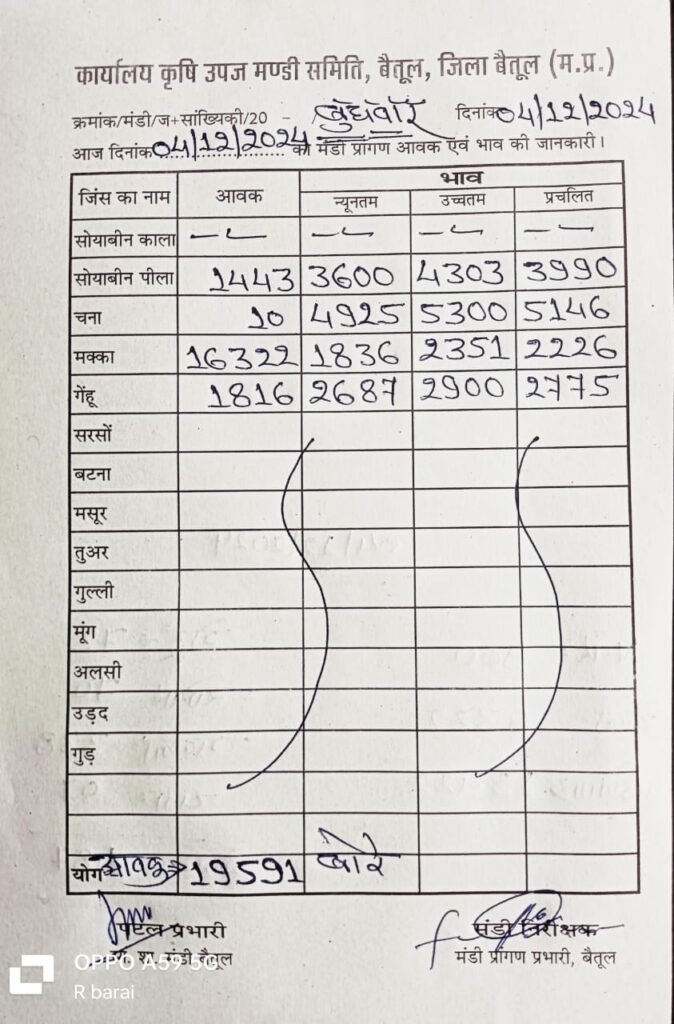 कार्यालय कृषि उपज मण्डी समिति, बैतूल, जिला बैतूल (म.प्र.)
क्रमांक/मंडी/ज+सांख्यिकी/20 - बुधवार दिनांक 04/12/2024
आज दिनांक 04/12/2024 को मंडी प्रांगण आवक एवं भाव की जानकारी।
जिंस का नाम आवक भाव
न्यूनतम उच्चतम प्रचलित
सोयाबीन काला
सोयाबीन पीला 1443 3600 4303 3990
चना 10 4925 5300 5146
मक्का 16322 1836 2351 2226
गेंहू 1816 2687 2900 2775
सरसों
बटना
मसूर
तुअर
गुल्ली
मूंग
अलसी
उड़द
गुड़
योग आवक 19591 बोरे
पटल प्रभारी मंडी निरीक्षक
मंडी बैतूल मंडी प्रांगण प्रभारी, बैतूल
OPPO A59 5G
R barai